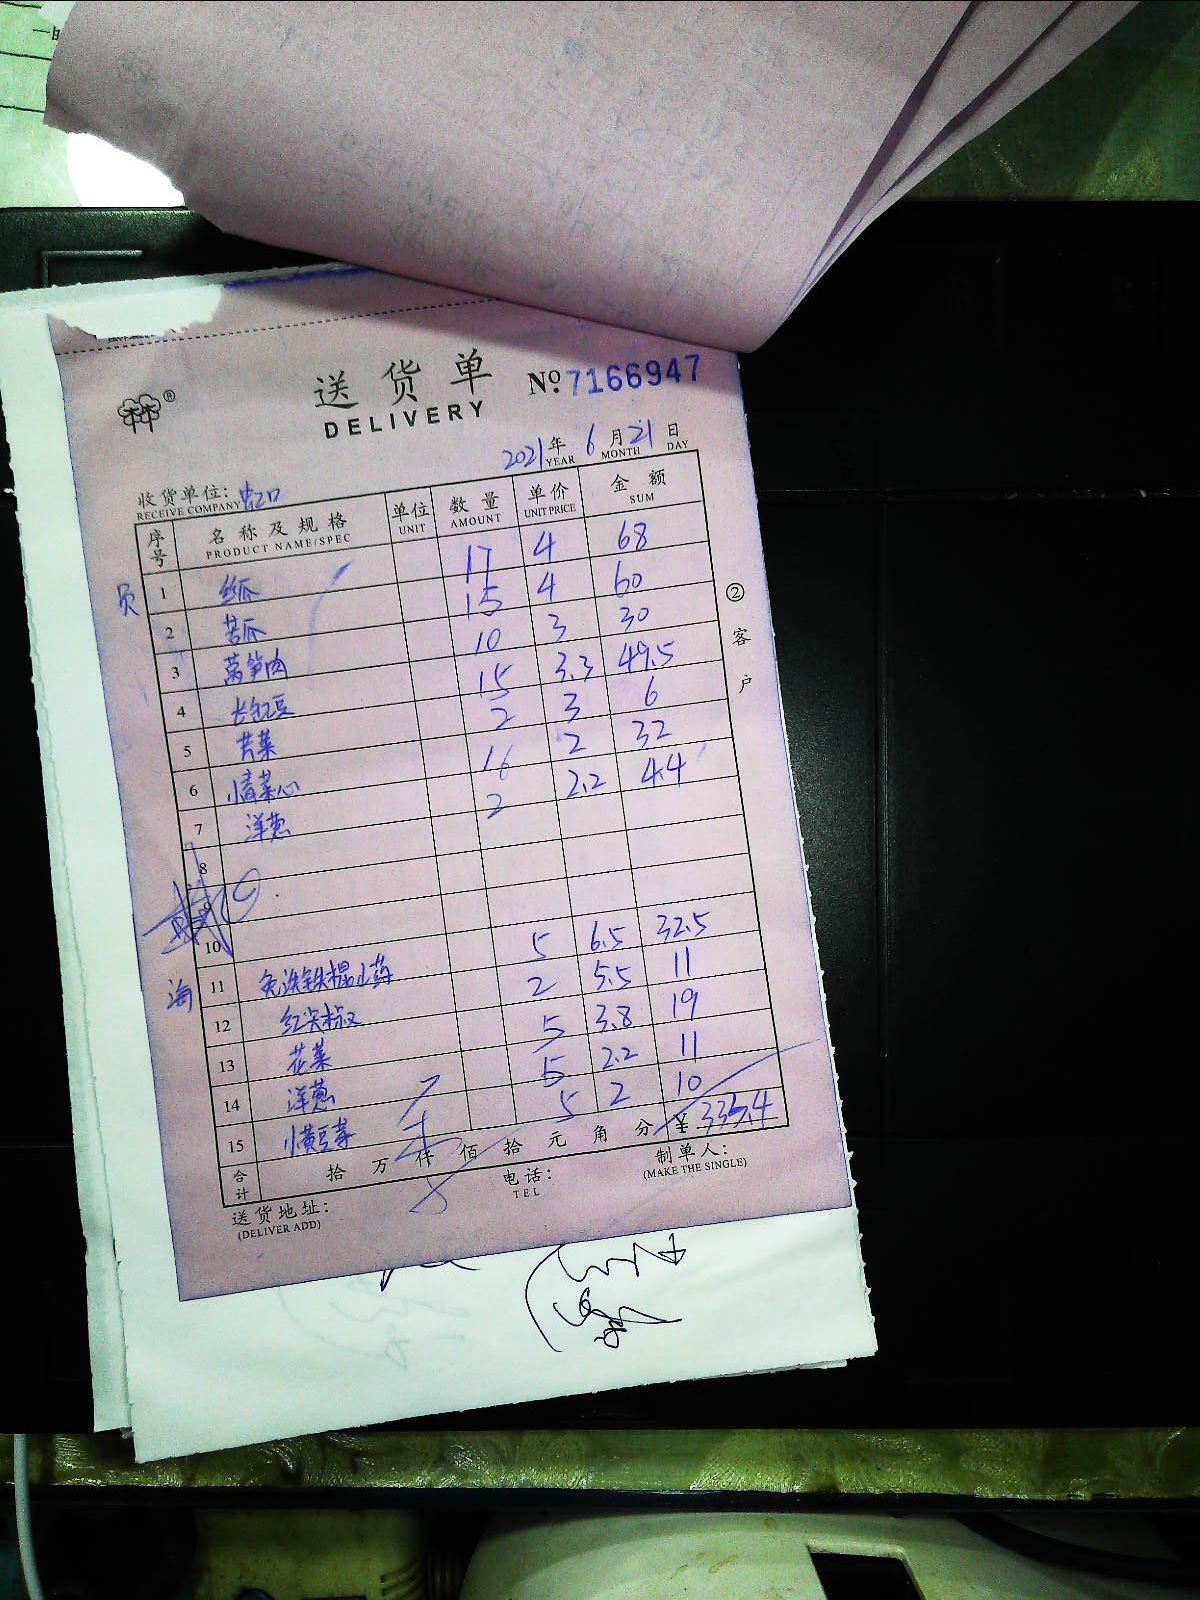 送货单 №7166947
DELIVERY
2021年 6月21日
YEAR MONTH DAY
收货单位：虹口
RECEIVE COMPANY
序号 名称及规格 单位 数量 单价 金额
PRODUCT NAME/SPEC UNIT AMOUNT UNIT PRICE SUM
员 1 丝瓜 17 4 68
2 苦瓜 15 4 60
3 莴笋肉 10 3 30
4 长豇豆 15 3.3 49.5
5 芹菜 2 3 6
6 小青菜心 16 2 32
7 洋葱 2 2.2 4.4
8
9
10
海 11 免洗铁棍山药 5 6.5 32.5
12 红尖椒 2 5.5 11
13 花菜 5 3.8 19
14 洋葱 5 2.2 11
15 小黄豆芽 5 2 10
合计 拾 万 仟 佰 拾 元 角 分 ¥ 333.4
送货地址： 电话： 制单人：
(DELIVER ADD) TEL (MAKE THE SINGLE)
②客户